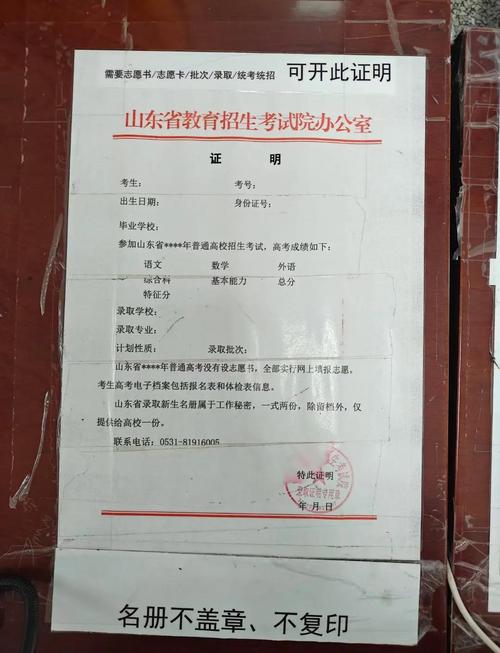 需要志愿书/志愿卡/批次/录取/统考统招 可开此证明
山东省教育招生考试院办公室
证 明
考生： 考号：
出生日期： 身份证号：
毕业学校：
参加山东省****年普通高校招生考试，高考成绩如下：
语文 数学 外语
综合科 基本能力 总分
特征分
录取学校：
录取专业：
计划性质： 录取批次：
山东省****年普通高考没有设志愿书，全部实行网上填报志愿。
考生高考电子档案包括报名表和体检表信息。
山东省录取新生名册属于工作秘密，一式两份，除留档外，仅
提供给高校一份。
联系电话：0531-81916005
特此证明
录取证明专用章
年 月 日
名册不盖章、不复印